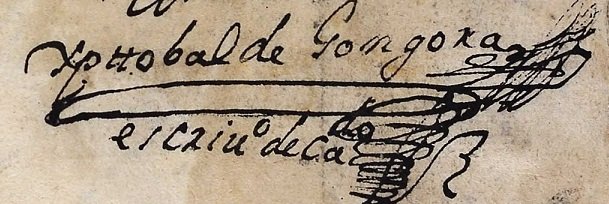 Xpttobal de Gongora
escriuº de cabdo